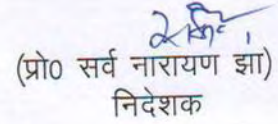 (प्रो0 सर्व नारायण झा)
निदेशक